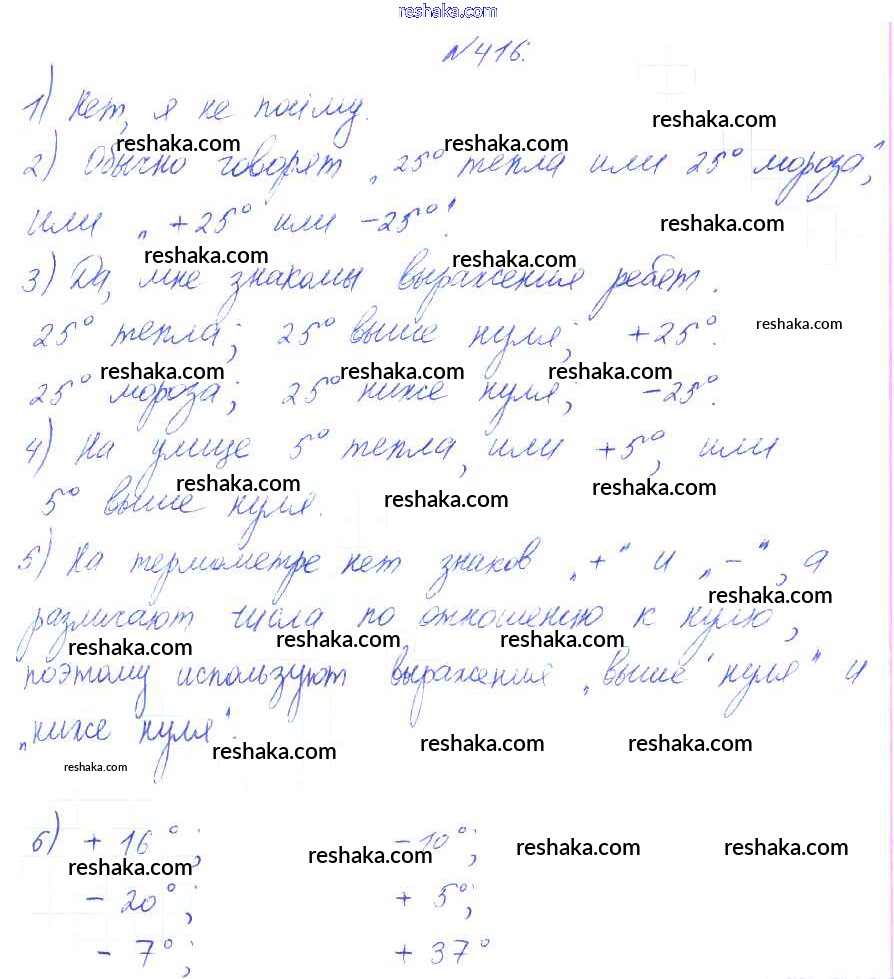 reshaka.com
№416.
1) Нет, я не пойму.
reshaka.com
reshaka.com reshaka.com
2) Обычно говорят „25° тепла или 25° мороза",
или „+25° или -25°".
reshaka.com
reshaka.com reshaka.com
3) Да, мне знакомы выражения ребят.
25° тепла; 25° выше нуля; +25°.
reshaka.com
reshaka.com reshaka.com reshaka.com
25° мороза; 25° ниже нуля; -25°.
4) На улице 5° тепла, или +5°, или
reshaka.com reshaka.com reshaka.com
5° выше нуля.
5) На термометре нет знаков „+" и „-", а
reshaka.com
различают числа по отношению к нулю,
reshaka.com reshaka.com reshaka.com
поэтому используют выражения „выше нуля" и
„ниже нуля".
reshaka.com reshaka.com reshaka.com
reshaka.com
6) +16°; -10°;
reshaka.com reshaka.com reshaka.com reshaka.com
-20°; +5°;
-7°; +37°